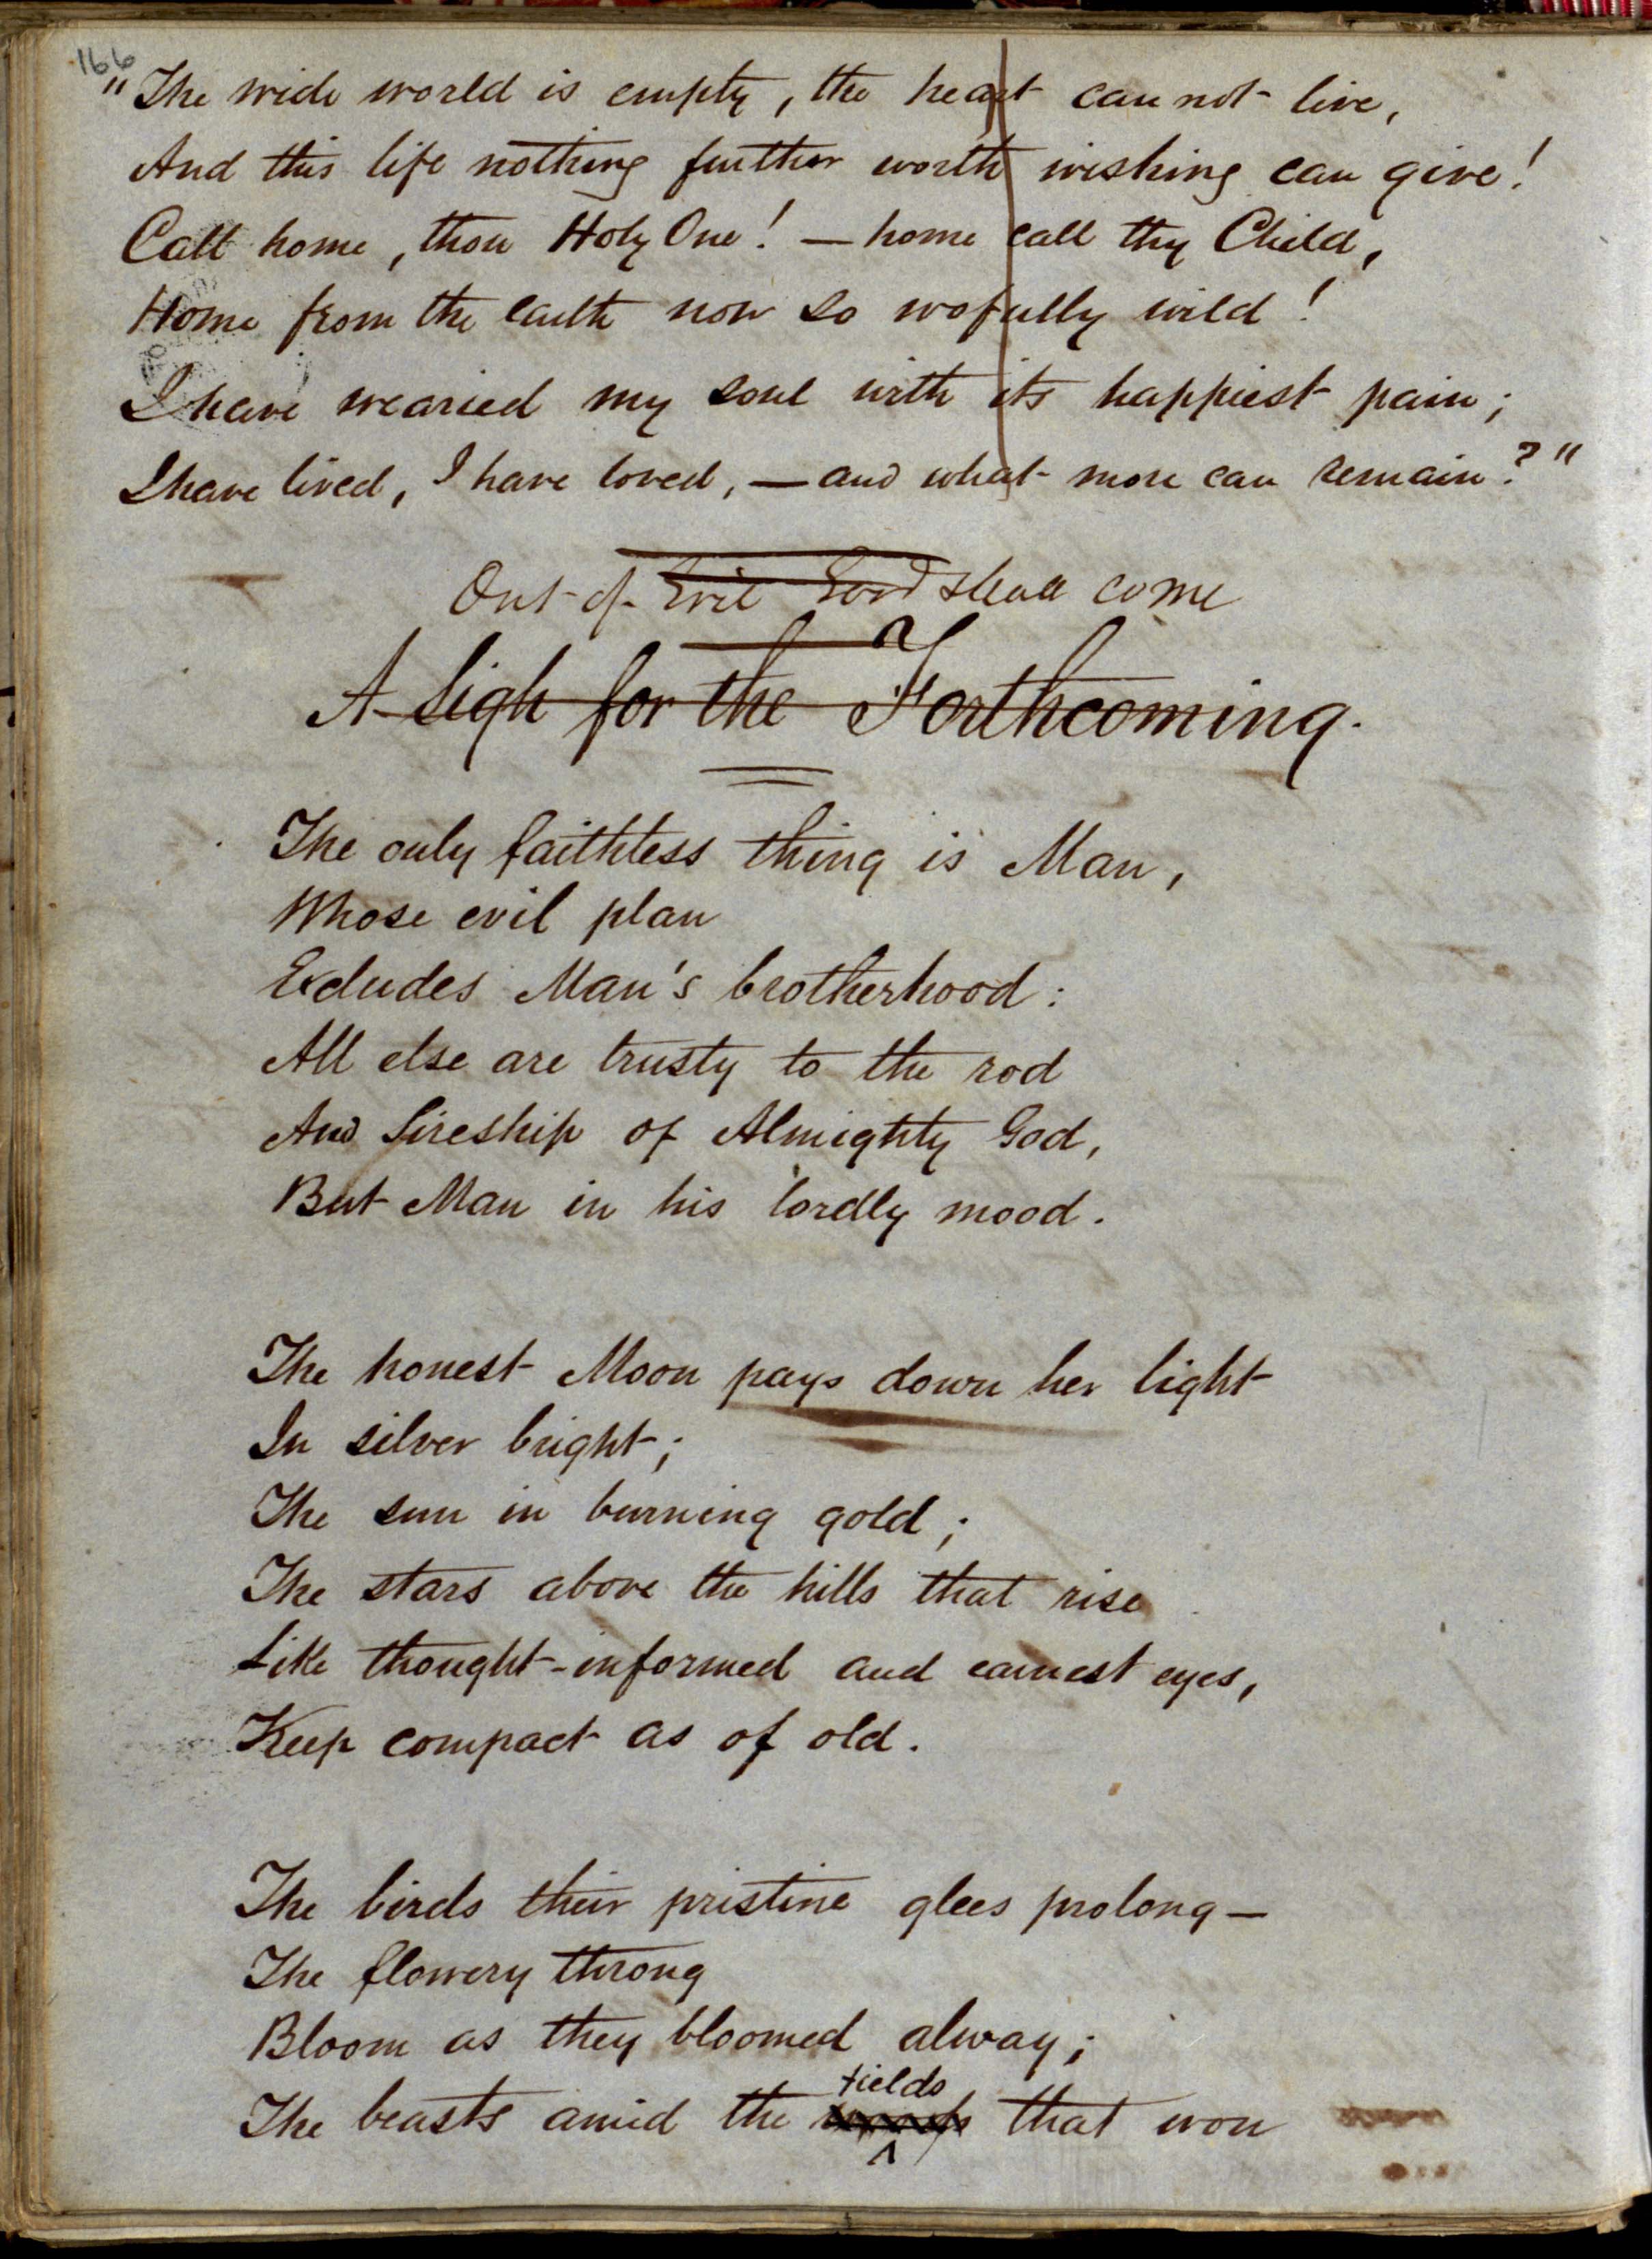 166
"The wide world is empty, the heart can not live,
And this life nothing further worth wishing can give!
Call home, thou Holy One! — home call thy Child,
Home from the earth now so wofully wild!
I have wearied my soul with its happiest pain;
I have lived, I have loved, — and what more can remain?"
Out of Evil Good shall come
A Sigh for the Forthcoming.
The only faithless thing is Man,
Whose evil plan
Excludes Man's brotherhood:
All else are trusty to the rod
And Sireship of Almighty God,
But Man in his lordly mood.
The honest Moon pays down her light
In silver bright;
The sun in burning gold;
The stars above the hills that rise
Like thought-informed and earnest eyes,
Keep compact as of old.
The birds their pristine glees prolong —
The flowery throng
Bloom as they bloomed alway;
fields
The beasts amid the that won